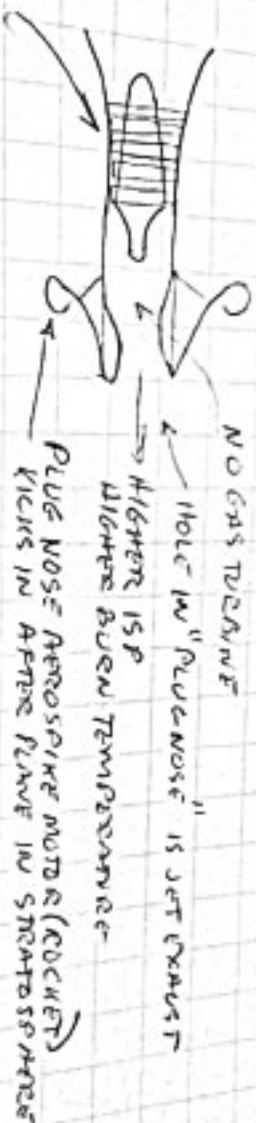 NO GAS TURBINE
HOLE IN "PLUG NOSE" IS JET EXHAUST
HIGHER ISP
HIGHER BURN TEMPERATURE
PLUG NOSE AEROSPIKE MOTOR (ROCKET)
KICKS IN AFTER PLANE IN STRATOSPHERE